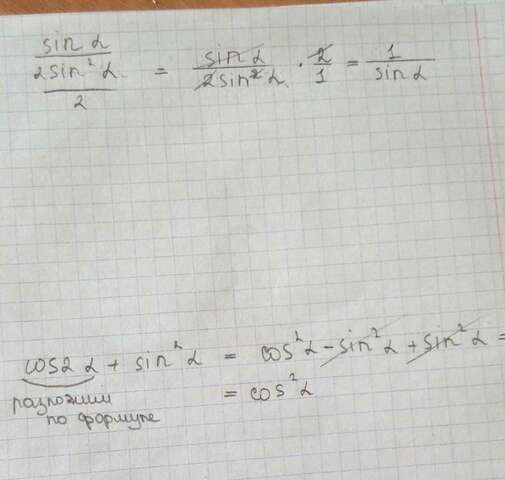 sin α / 2sin² α / 2 = sin α / 2sin² α · 2 / 1 = 1 / sin α
cos2 α + sin² α = cos² α - sin² α + sin² α =
разложим = cos² α
по формуле